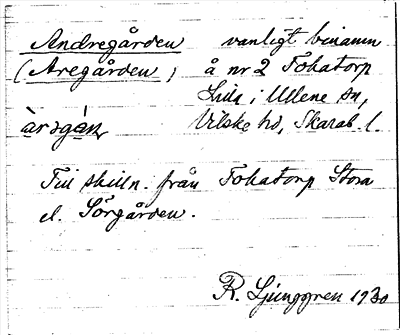 Andregården vanligt binamn
(Aregården) å nr 2 Fökatorp
Lilla i Ullene sn,
àrəgán, Vilske hd, Skarab. l.
Till skilln. från Fökatorp Stora
el. Sörgården.
R. Ljunggren 1930